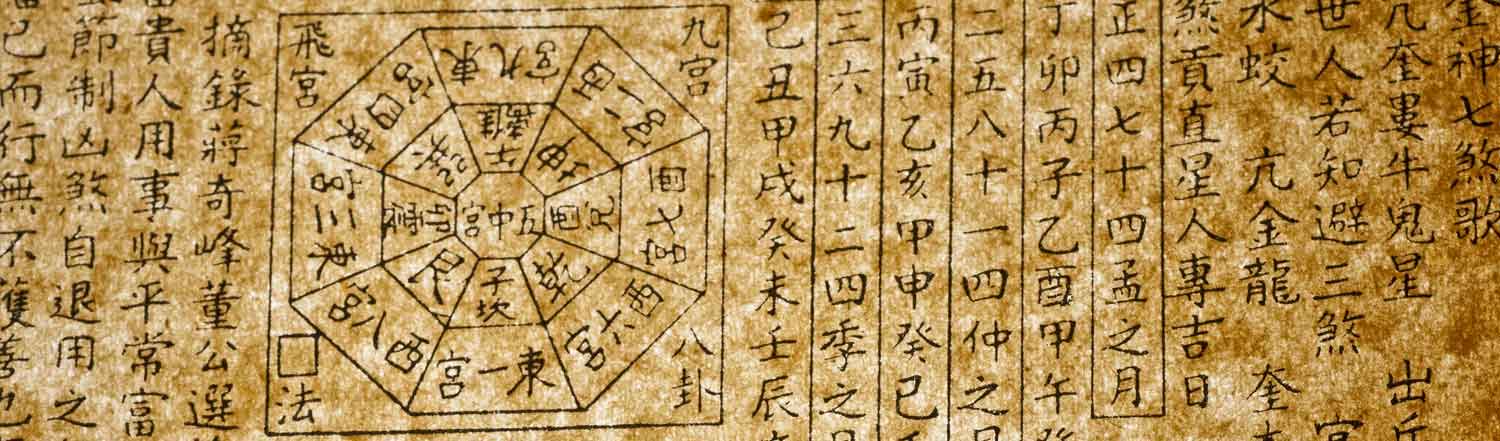 金神七煞歌
亢奎婁牛鬼星 出
世人若知避三煞
水蛟 亢金龍 奎
煞貢直星人專吉日
正四七十四孟之月
丁卯丙子乙酉甲午
二五八十一四仲之
丙寅乙亥甲申癸巳
三六九十二四季之
己丑甲戌癸未壬辰
九宮
八卦
飛宮
□法
東九宮
西二宮
西七宮
西六宮
東一宮
西八宮
東三宮
東四宮
離
坤
兌酉
乾
子坎
艮
震卯
巽
中宮
摘錄蔣奇峰董公選
富貴人用事與平常富
節制凶煞自退用之
己而行無不獲善也